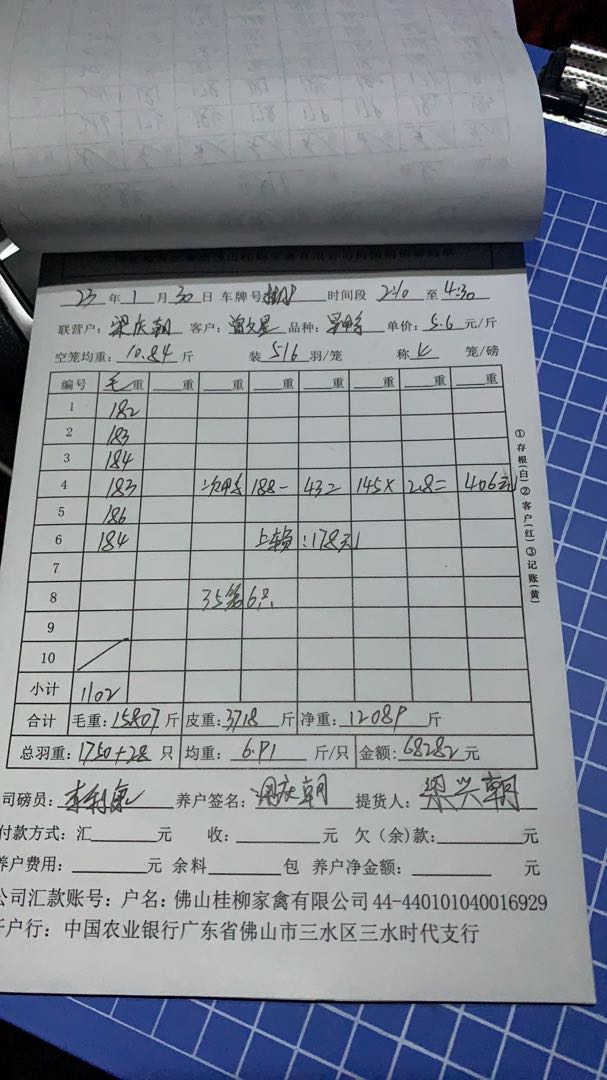 23 年 1 月 30 日 车牌号 时间段 2:10 至 4:30
联营户: 梁庆朝 客户: 曾文星 品种: 单价: 5.6 元/斤
空笼均重: 10.84 斤 装 5/6 羽/笼 称 笼/磅
编号 毛重 重 重 重 重 重 重 重
1 182
2 183
3 184
4 183 次鸭 188- 43= 145× 2.8= 406元
5 186
6 184 上赖:178元
7
8 35笼6只
9
10
小计 1102
合计 毛重: 15807 斤 皮重: 3718 斤 净重: 12089 斤
总羽重: 1750+28 只 均重: 6.91 斤/只 金额: 68282 元
司磅员: 养户签名: 梁庆朝 提货人: 梁兴朝
付款方式: 汇 元 收: 元 欠(余)款: 元
养户费用: 元 余料 包 养户净金额: 元
公司汇款账号: 户名: 佛山桂柳家禽有限公司 44-440101040016929
开户行: 中国农业银行广东省佛山市三水区三水时代支行
①存根(白)②客户(红)③记账(黄)